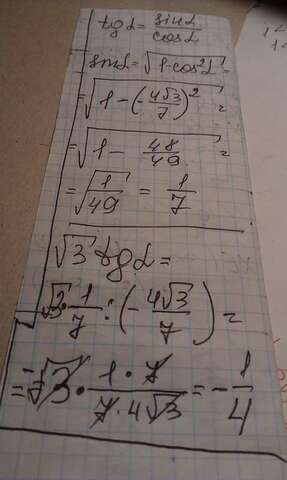 tg α = sin α / cos α
sin α = √(1-cos²α) =
= √(1 - (-4√3/7)²) =
= √(1 - 48/49) =
= √(1/49) = 1/7
√3 tg α =
√3 · 1/7 : (-4√3/7) =
= -√3 · (1 · 7)/(7 · 4√3) = -1/4